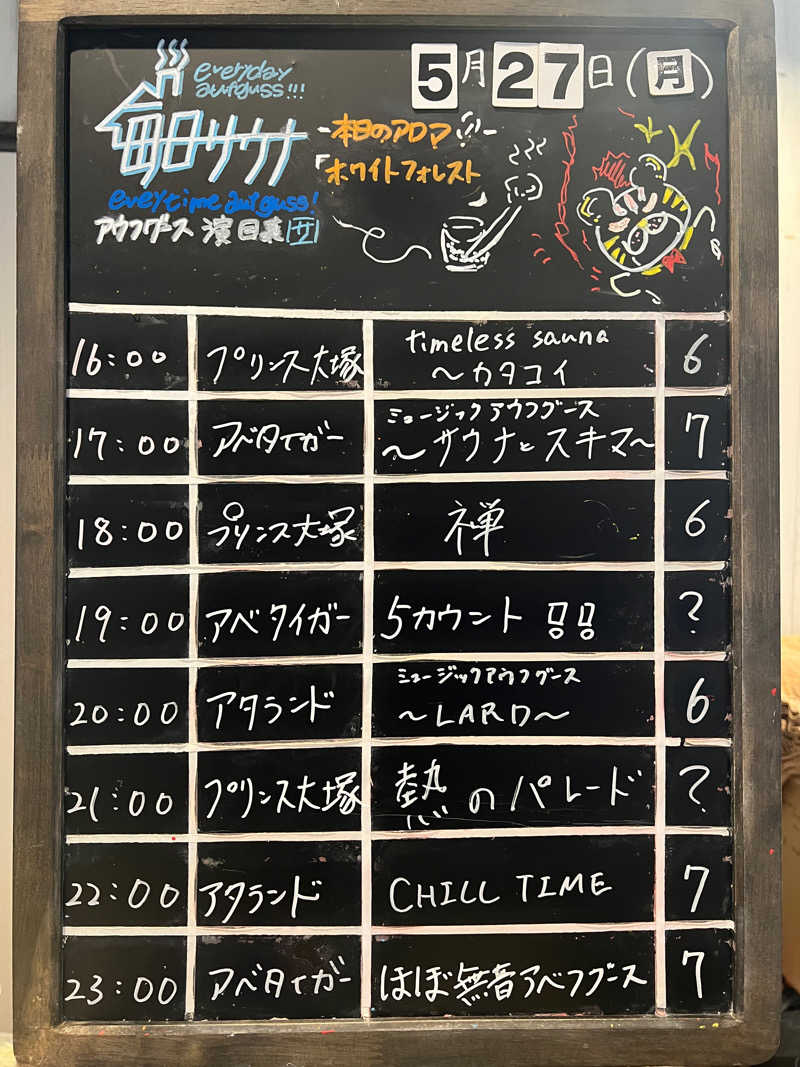 everyday
aufguss!!!
毎日サウナ
everytime aufguss!
5月27日(月)
-本日のアロマ!!!-
「ホワイトフォレスト
16:00 プリンス大塚 timeless sauna
～カタコイ 6
17:00 アベタイガー ミュージックアウフグース
～サウナとスキマ～ 7
18:00 プリンス大塚 禅 6
19:00 アベタイガー 5カウント!! ?
20:00 アタランド ミュージックアウフグース
～LARD～ 6
21:00 プリンス大塚 熱のパレード ?
22:00 アタランド CHILL TIME 7
23:00 アベタイガー ほぼ無音アベフグース 7
アウフグース